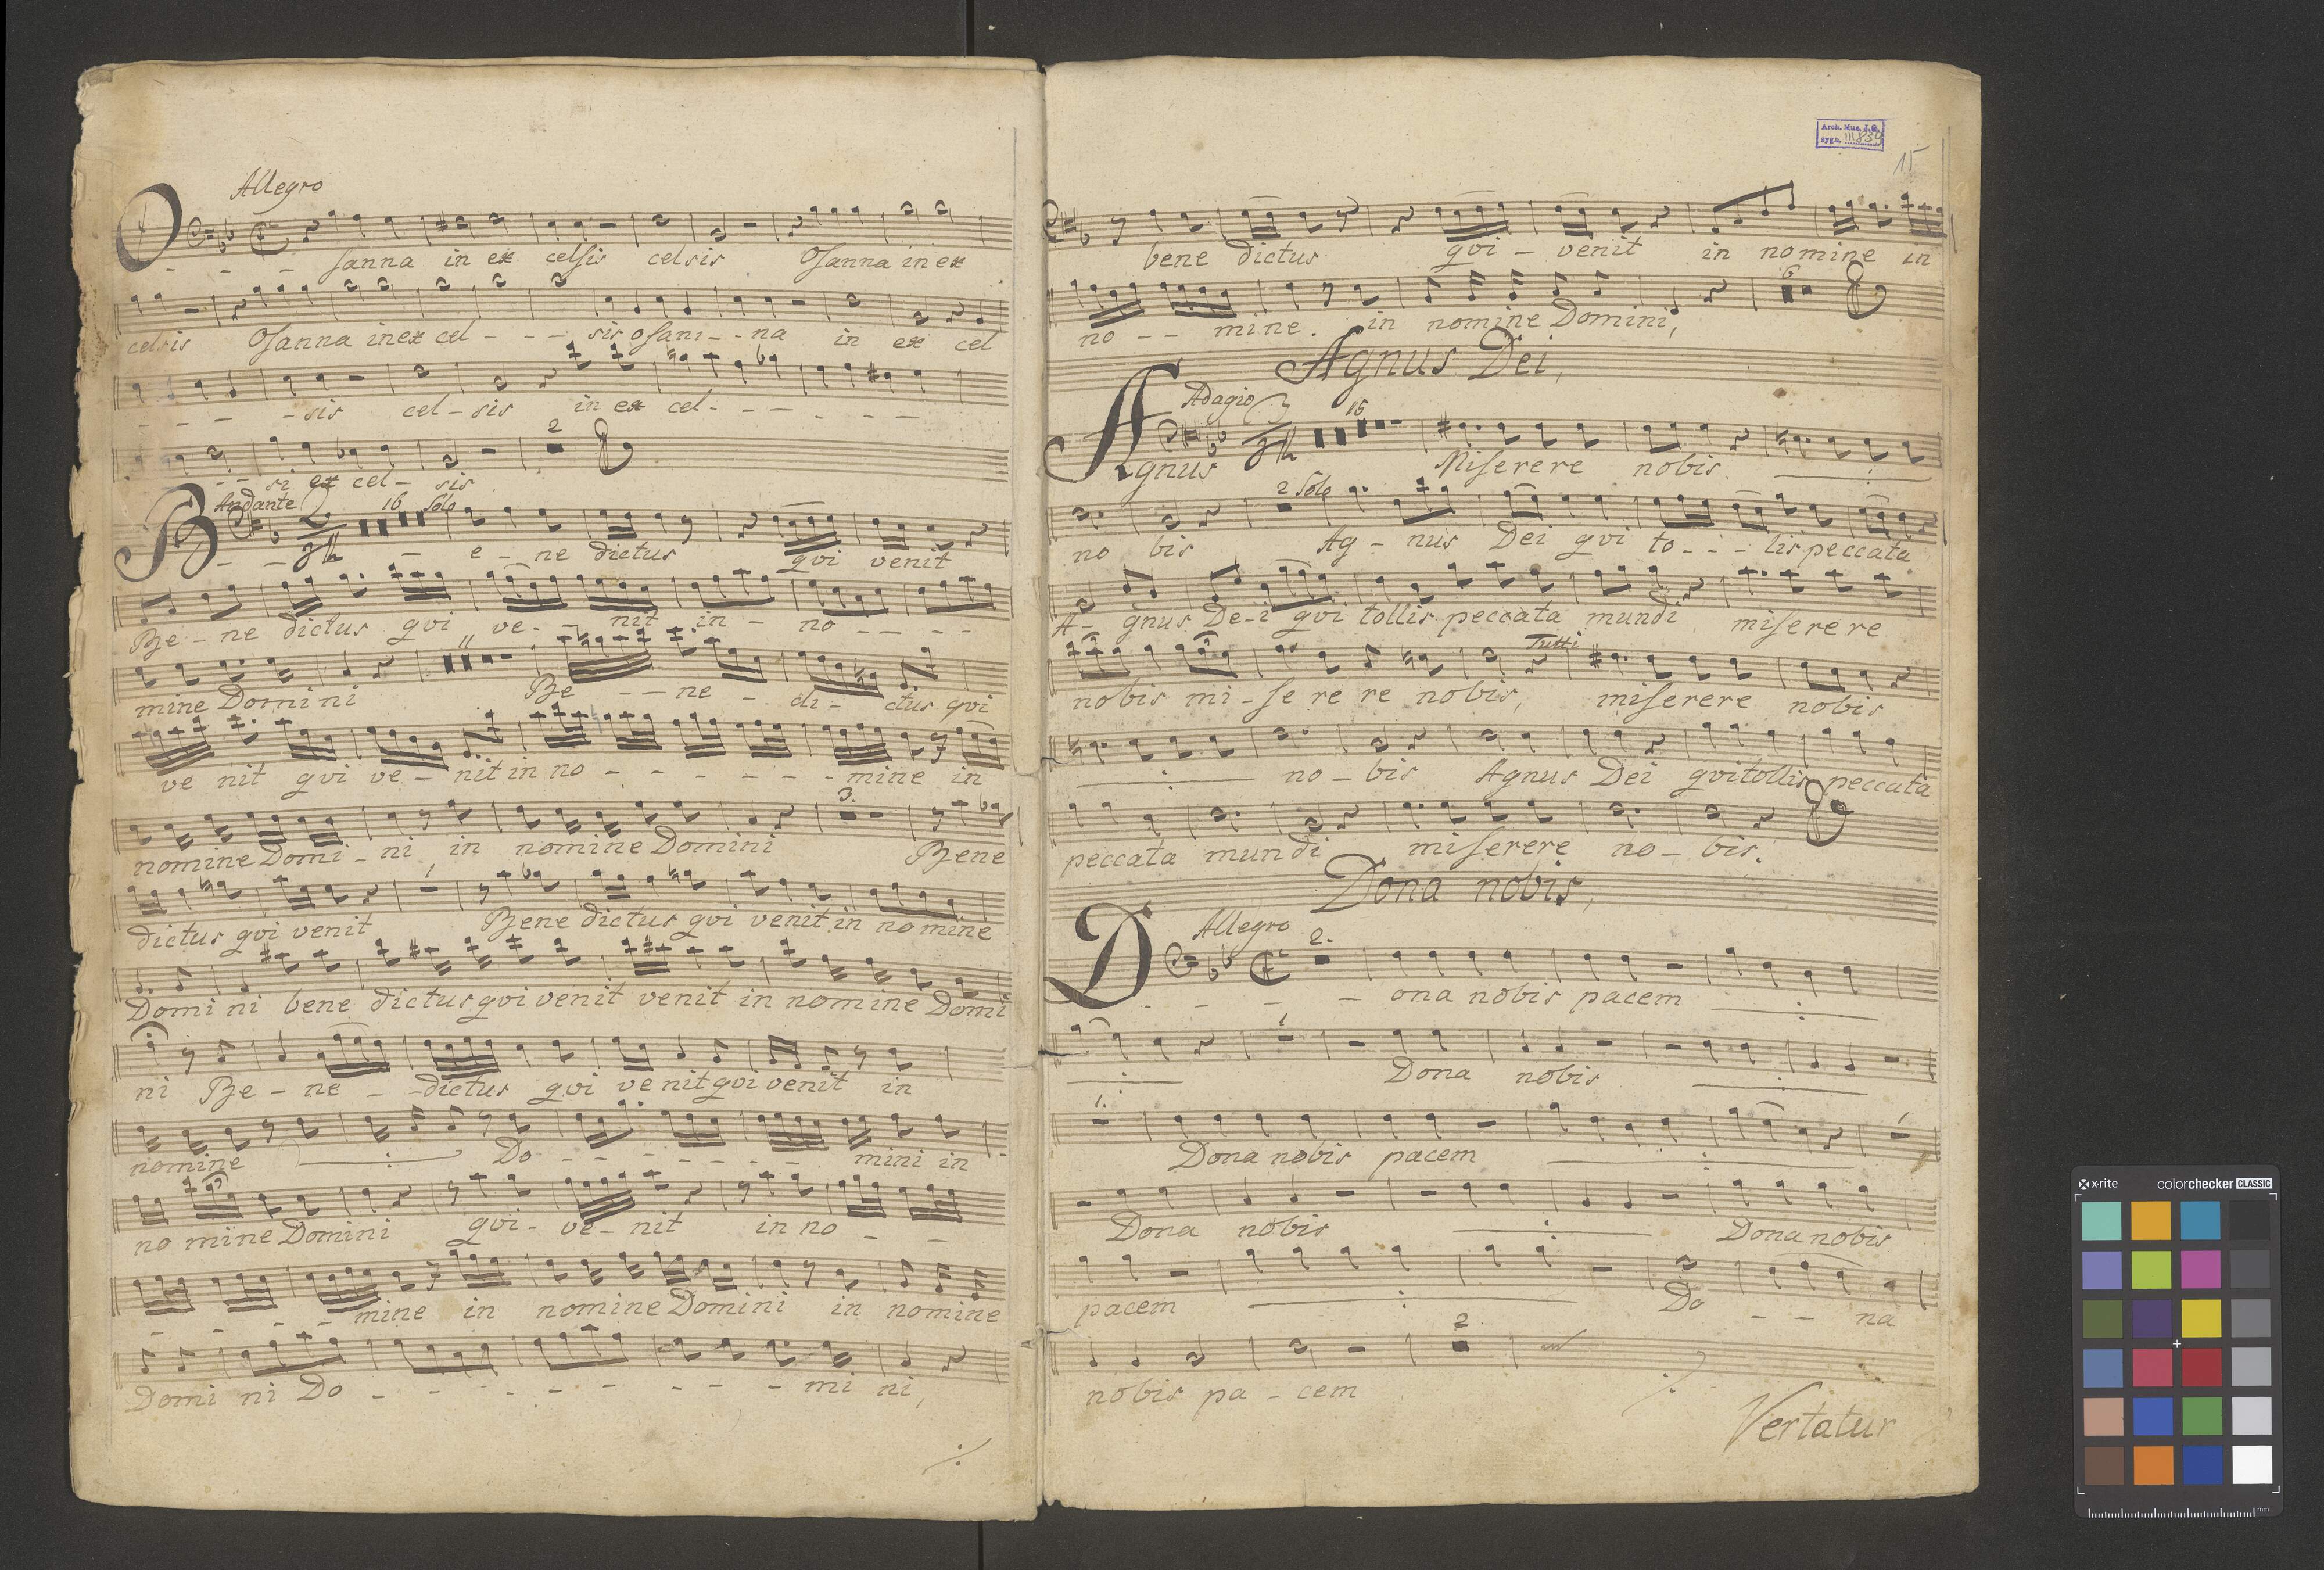 Allegro
O - - - sanna in ex celsis celsis Osanna in ex
celsis Osanna in ex cel - - - sis osan - - na in ex cel
- - - - sis cel - sis in ex cel - - - - - -
- - si ex cel - sis
2
Andante 2 16 Solo
B - - 4 - e - ne dictus qvi venit
Be - ne dictus qvi ve - - nit in - no - - - -
11
mine Domini Be - - ne - di - ctus qvi
ve nit qvi ve - nit in no - - - - - - mine in
3.
nomine Domi - ni in nomine Domini Bene
1
dictus qvi venit Bene dictus qvi venit in nomine
Domini ni bene dictus qvi venit venit in nomine Domi
ni Be - ne - - dictus qvi ve nit qvi venit in
nomine Do - - - - - - - mini in
no mine Domini qvi - ve - nit in no - -
- - - - mine in nomine Domini in nomine
Domi ni Do - - - - - - - - mi ni,
Arch. Mus. J.G.
sygn. III 834
15
bene dictus qvi - venit in nomine in
6
no - - mine. in nomine Domini,
Agnus Dei,
Adagio 3 16
Agnus 4 Miserere nobis
2 Solo
no bis Ag - nus Dei qvi to - - - lis peccata
A - gnus De - i qvi tollis peccata mundi miserere
Tutti
nobis mi - se re re nobis, miserere nobis
no - bis Agnus Dei qvi tollis peccata
peccata mundi miserere no - bis.
Dona nobis,
Allegro 2.
D - - - - ona nobis pacem
1
Dona nobis
1. 1
Dona nobis pacem
Dona nobis Dona nobis
pacem Do - - na
2
nobis pa - cem
Vertatur
x-rite colorchecker CLASSIC
mm